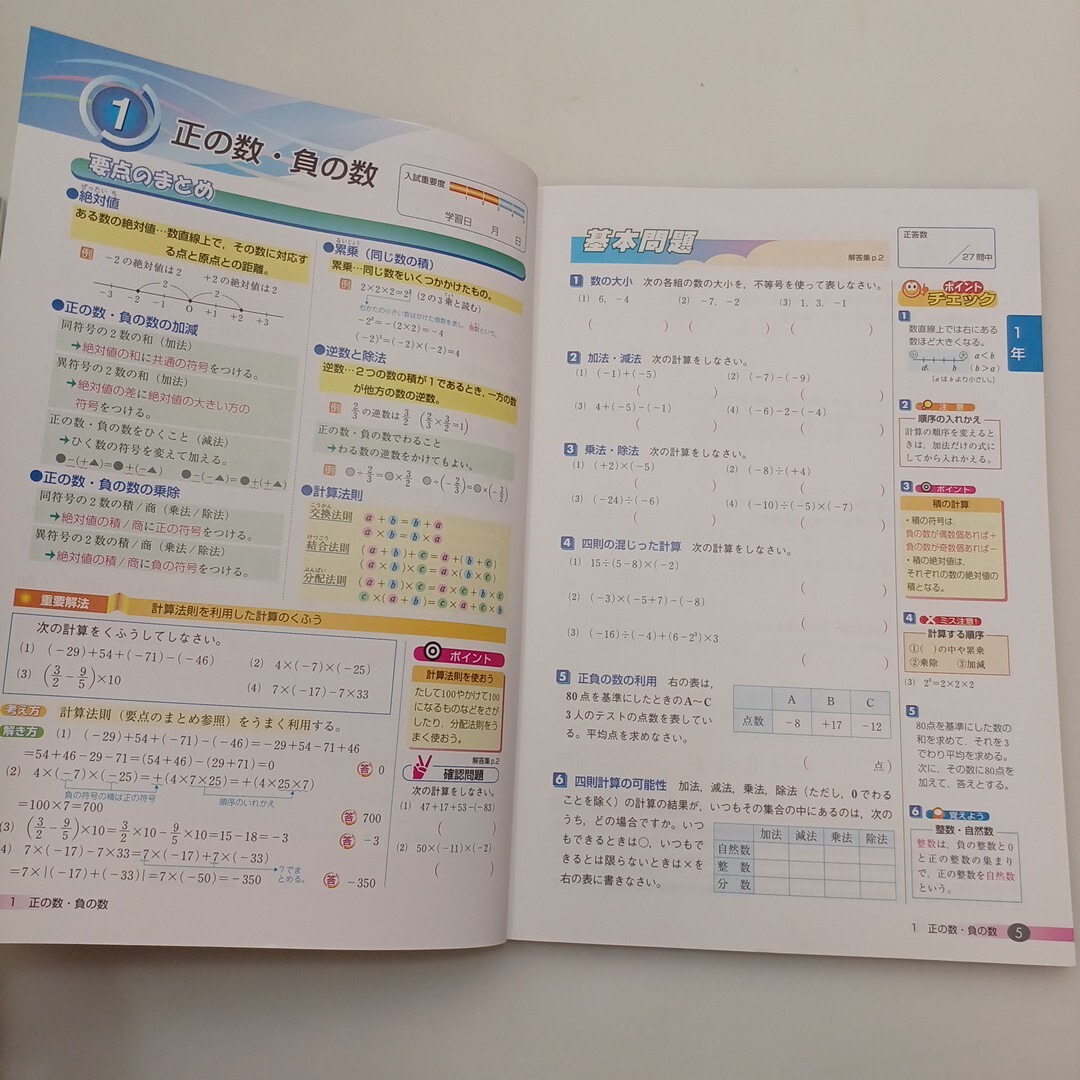 1
正の数・負の数
入試重要度
1 2 3 4 5
学習日 月 日
要点のまとめ
ぜったいち
●絶対値
ある数の絶対値…数直線上で，その数に対応する点と原点との距離。
例 −2の絶対値は2 +2の絶対値は2
2 2
−3 −2 −1 O +1 +2 +3
●正の数・負の数の加減
同符号の2数の和（加法）
➔絶対値の和に共通の符号をつける。
異符号の2数の和（加法）
➔絶対値の差に絶対値の大きい方の
符号をつける。
正の数・負の数をひくこと（減法）
➔ひく数の符号を変えて加える。
●−(+▲)=●+(−▲) ●−(−▲)=●+(+▲)
●正の数・負の数の乗除
同符号の2数の積/商（乗法/除法）
➔絶対値の積/商に正の符号をつける。
異符号の2数の積/商（乗法/除法）
➔絶対値の積/商に負の符号をつける。
るいじょう
●累乗（同じ数の積）
累乗…同じ数をいくつかかけたもの。
例 2×2×2=2³（2の3乗と読む）
右かたの小さい数はかけた個数を表し，指数という。
−2²=−(2×2)=−4
(−2)²=(−2)×(−2)=4
●逆数と除法
逆数…2つの数の積が1であるとき，一方の数
が他方の数の逆数。
例 2/3の逆数は3/2 (2/3×3/2=1)
正の数・負の数でわること
➔わる数の逆数をかけてもよい。
例 ●÷2/3=●×3/2 ●÷(−2/3)=●×(−3/2)
●計算法則
こうかん
交換法則 a+b=b+a
a×b=b×a
けつごう
結合法則 (a+b)+c=a+(b+c)
(a×b)×c=a×(b×c)
ぶんぱい
分配法則 (a+b)×c=a×c+b×c
c×(a+b)=c×a+c×b
重要解法 計算法則を利用した計算のくふう
次の計算をくふうしてしなさい。
(1) (−29)+54+(−71)−(−46) (2) 4×(−7)×(−25)
(3) (3/2−9/5)×10 (4) 7×(−17)−7×33
考え方 計算法則（要点のまとめ参照）をうまく利用する。
解き方 (1) (−29)+54+(−71)−(−46)=−29+54−71+46
=54+46−29−71=(54+46)−(29+71)=0 答 0
(2) 4×(−7)×(−25)=+(4×7×25)=+(4×25×7)
負の符号の積は正の符号 順序のいれかえ
=100×7=700 答 700
(3) (3/2−9/5)×10=3/2×10−9/5×10=15−18=−3 答 −3
4) 7×(−17)−7×33=7×(−17)+7×(−33)
7でまとめる。
=7×{(−17)+(−33)}=7×(−50)=−350 答 −350
ポイント
計算法則を使おう
たして100やかけて100
になるものなどをさが
したり，分配法則をう
まく使おう。
解答集p.2
確認問題
次の計算をしなさい。
(1) 47+17+53−(−83)
( )
(2) 50×(−11)×(−2)
( )
1 正の数・負の数
基本問題
解答集p.2
正答数
/27問中
1 数の大小 次の各組の数の大小を，不等号を使って表しなさい。
(1) 6，−4 (2) −7，−2 (3) 1，3，−1
( ) ( ) ( )
2 加法・減法 次の計算をしなさい。
(1) (−1)+(−5) (2) (−7)−(−9)
( ) ( )
(3) 4+(−5)−(−1) (4) (−6)−2−(−4)
( ) ( )
3 乗法・除法 次の計算をしなさい。
(1) (+2)×(−5) (2) (−8)÷(+4)
( ) ( )
(3) (−24)÷(−6) (4) (−10)÷(−5)×(−7)
( ) ( )
4 四則の混じった計算 次の計算をしなさい。
(1) 15÷(5−8)×(−2)
( )
(2) (−3)×(−5+7)−(−8)
( )
(3) (−16)÷(−4)+(6−2³)×3
( )
5 正負の数の利用 右の表は，
80点を基準にしたときのA〜C
3人のテストの点数を表してい
る。平均点を求めなさい。
A B C
点数 −8 +17 −12
( 点)
6 四則計算の可能性 加法，減法，乗法，除法（ただし，0でわる
ことを除く）の計算の結果が，いつもその集合の中にあるのは，次の
うち，どの場合ですか。いつ
もできるときは○，いつも
できるとは限らないときは×を
右の表に書きなさい。
加法 減法 乗法 除法
自然数
整数
分数
ポイント
チェック
1
数直線上では右にある
数ほど大きくなる。
小 大 a<b
a b (b>a)
[aはbより小さい。]
2 注意
順序の入れかえ
計算の順序を変えると
きは，加法だけの式に
してから入れかえる。
3 ポイント
積の計算
・積の符号は，
負の数が偶数個あれば＋
負の数が奇数個あれば−
・積の絶対値は，
それぞれの数の絶対値の
積となる。
4 ミス注意！
計算する順序
①( )の中や累乗
②乗除 ③加減
(3) 2³=2×2×2
5
80点を基準にした数の
和を求めて，それを3
でわり平均を求める。
次に，その数に80点を
加えて，答えとする。
6 覚えよう
整数・自然数
整数は，負の整数と0
と正の整数の集まり
で，正の整数を自然数
という。
1年
1 正の数・負の数 5